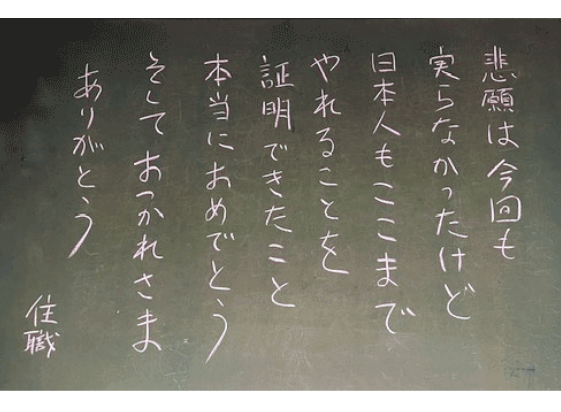 悲願は今回も
実らなかったけど
日本人もここまで
やれることを
証明できたこと
本当におめでとう
そして おつかれさま
ありがとう
住職